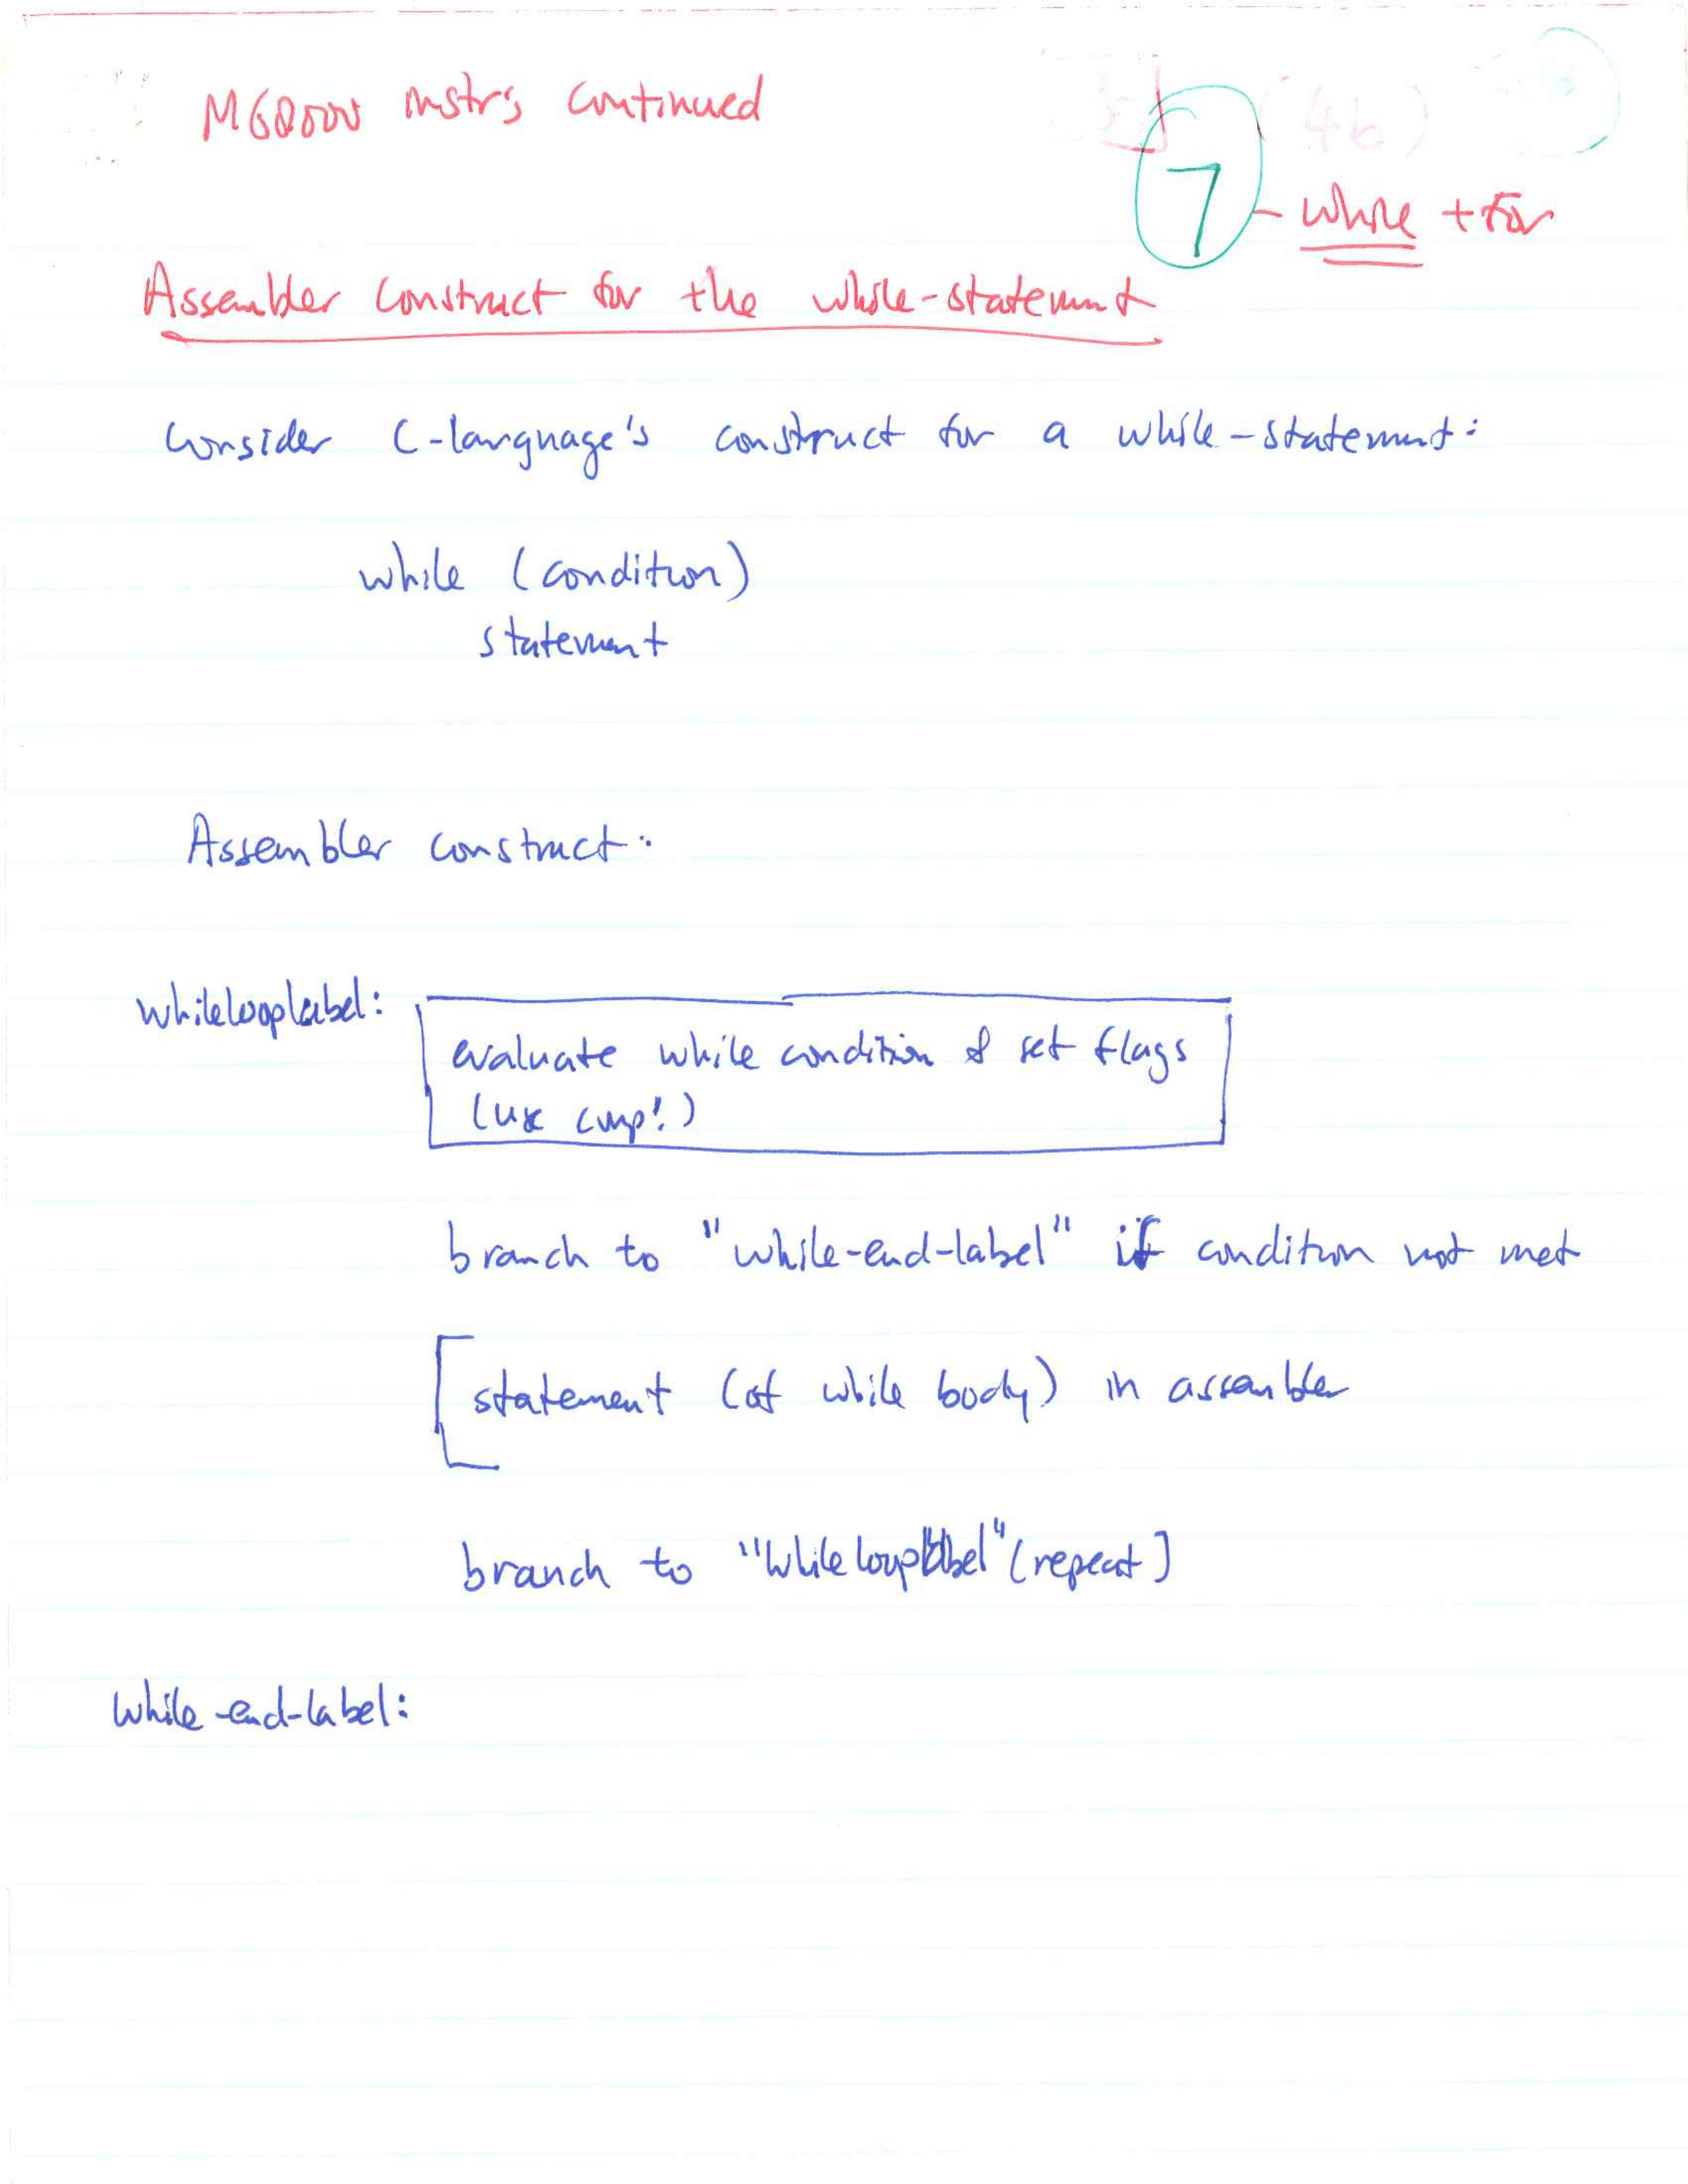 M68000 instr's continued
7 - while + for
Assembler construct for the while-statement
Consider C-language's construct for a while-statement:
while (condition)
statement
Assembler construct:
whilelooplabel:
evaluate while condition & set flags
(use cmp!)
branch to "while-end-label" if condition not met
statement (of while body) in assembler
branch to "whilelooplabel" (repeat)
while-end-label: